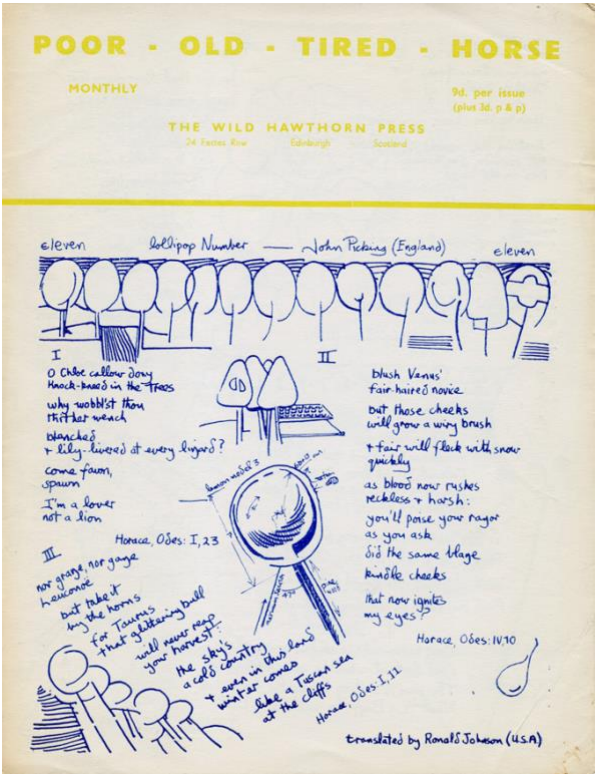 POOR - OLD - TIRED - HORSE
MONTHLY
9d. per issue
(plus 3d. p & p)
THE WILD HAWTHORN PRESS
24 Fettes Row Edinburgh Scotland
eleven lollipop Number — John Picking (England) eleven
I
O Chloe callow doxy
knock-kneed in the trees
why wobbl'st thou
thither wench
blanched
& lily-livered at every lizard?
come fawn,
spawn
I'm a lover
not a lion
Horace, Odes: I, 23
II
blush Venus'
fair-haired novice
but those cheeks
will grow a wiry brush
& fair will fleck with snow
quickly
as blood now rushes
reckless & harsh:
you'll poise your razor
as you ask
did the same blaze
kindle cheeks
that now ignites
my eyes?
Horace, Odes: IV, 10
lemon model 3
III
nor graze, nor gaze
Leuconoe
but take it
by the horns
for Taurus
& that glittering bull
will never reap
your harvest:
the sky's
a cold country
& even in this land
winter comes
like a Tuscan sea
at the cliffs
Horace, Odes: I, 11
translated by Ronald Johnson (U.S.A)